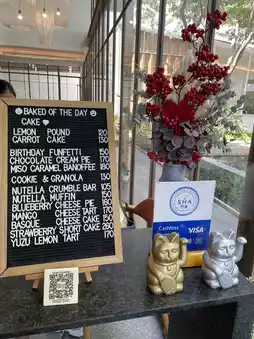 BAKED OF THE DAY
CAKE
LEMON POUND 120
CARROT CAKE 130
BIRTHDAY FUNFETTI 150
CHOCOLATE CREAM PIE 170
MISO CARAMEL BANOFFEE 180
COOKIE & GRANOLA 130
NUTELLA CRUMBLE BAR 105
NUTELLA MUFFIN 150
BLUEBERRY CHEESE PIE 160
MANGO CHEESE TART 170
BASQUE CHEESE CAKE 150
STRAWBERRY SHORT CAKE 260
YUZU LEMON TART 170
SHA
Cashless
VISA